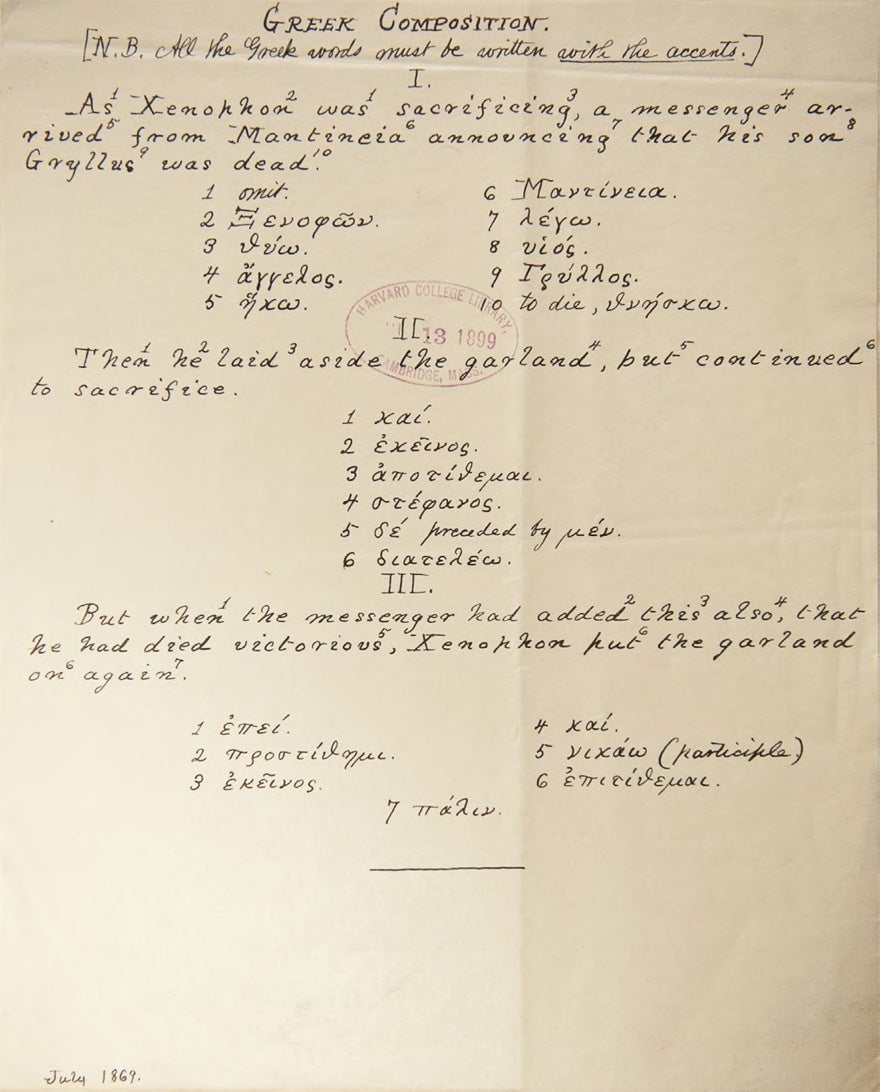 GREEK COMPOSITION.
[N.B. All the Greek words must be written with the accents.]
I.
As¹ Xenophon² was¹ sacrificing³, a messenger⁴ ar-
rived⁵ from Mantineia⁶ announcing⁷ that his son⁸
Gryllus⁹ was dead¹⁰.
1 omit. 6 Μαντίνεια.
2 Ξενοφῶν. 7 λέγω.
3 θύω. 8 υἱός.
4 ἄγγελος. 9 Γρύλλος.
5 ἥκω. 10 to die, θνήσκω.
HARVARD COLLEGE LIBRARY,
13 1899
CAMBRIDGE, MASS.
II.
Then¹ he² laid³ aside the garland⁴, but⁵ continued⁶
to sacrifice.
1 καί.
2 ἐκεῖνος.
3 ἀποτίθεμαι.
4 στέφανος.
5 δέ preceded by μέν.
6 διατελέω.
III.
But when¹ the messenger had added² this³ also⁴, that
he had died victorious⁵, Xenophon put⁶ the garland
on⁶ again⁷.
1 ἐπεί. 4 καί.
2 προστίθημι. 5 νικάω (participle)
3 ἐκεῖνος. 6 ἐπιτίθεμαι.
7 πάλιν.
July 1869.